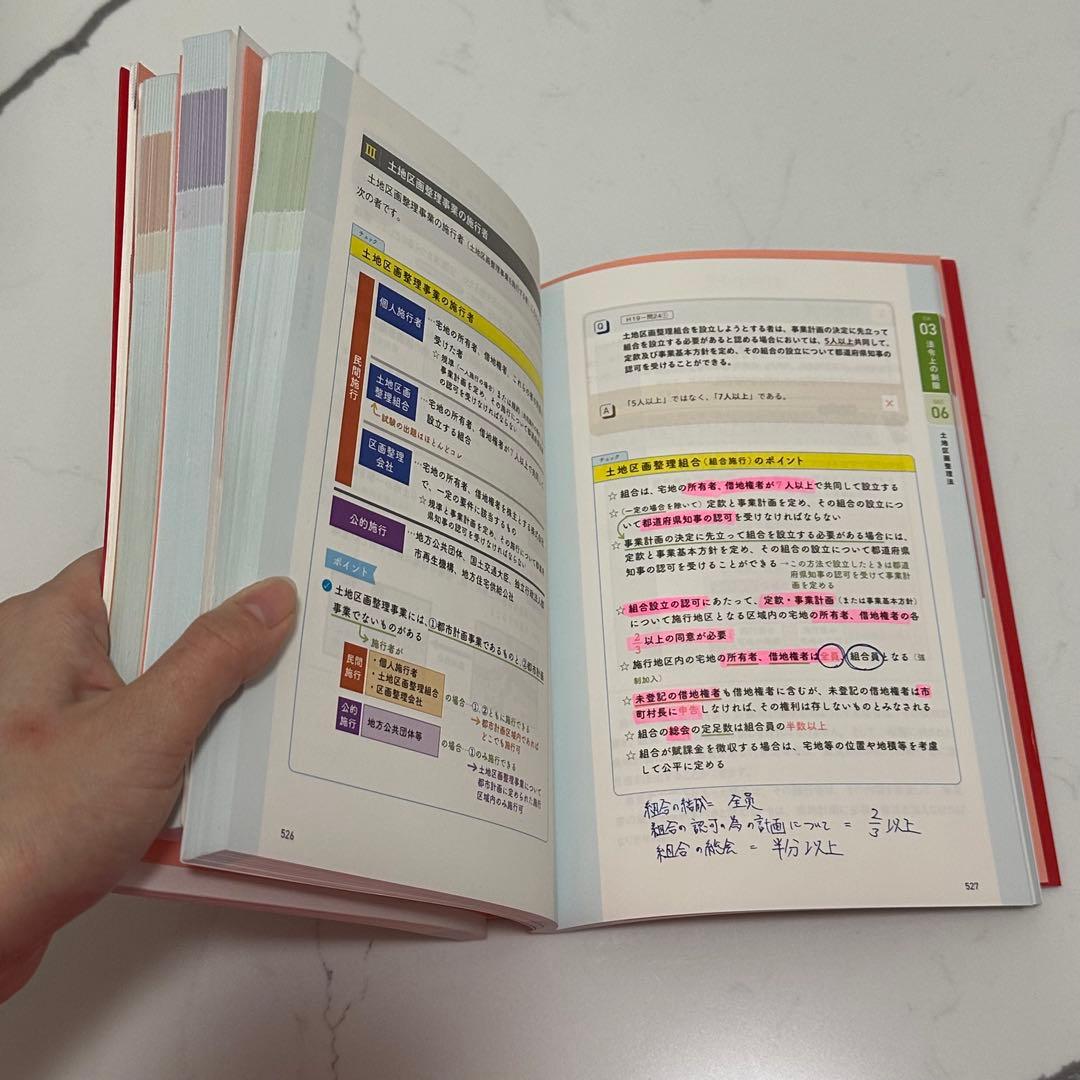 III 土地区画整理事業の施行者
土地区画整理事業の施行者（土地区画整理事業を施行する者
次の者です。
チェック
土地区画整理事業の施行者
民間施行
個人施行者
…宅地の所有者、借地権者、これらの
受けた者
☆規準（一人施行の場合）または規約
事業計画を定め、その施行について都道府県
の認可を受けなければならない
土地区画
整理組合
…宅地の所有者、借地権者が7人以上で共同して
設立する組合
試験の出題はほとんどコレ
区画整理
会社
…宅地の所有者、借地権者を株主とする株式会社
で、一定の要件に該当するもの
☆規準と事業計画を定め、その施行について都道府
県知事の認可を受けなければならない
公的施行
…地方公共団体、国土交通大臣、独立行政法人都
市再生機構、地方住宅供給公社
ポイント
土地区画整理事業には、①都市計画事業であるものと、②都市計画
事業でないものがある
施行者が
民間
施行
・個人施行者
・土地区画整理組合
・区画整理会社
の場合…①、②ともに施行できる
→都市計画区域内であれば
どこでも施行可
公的
施行
地方公共団体等
の場合…①のみ施行できる
→土地区画整理事業について
都市計画に定められた施行
区域内のみ施行可
526
Q H19-問24①
土地区画整理組合を設立しようとする者は、事業計画の決定に先立って
組合を設立する必要があると認める場合においては、5人以上共同して、
定款及び事業基本方針を定め、その組合の設立について都道府県知事の
認可を受けることができる。
A 「5人以上」ではなく、「7人以上」である。 ×
CH
03
法令上の制限
SEC
06
土地区画整理法
チェック
土地区画整理組合（組合施行）のポイント
☆ 組合は、宅地の所有者、借地権者が7人以上で共同して設立する
☆（一定の場合を除いて）定款と事業計画を定め、その組合の設立につ
いて都道府県知事の認可を受けなければならない
☆ 事業計画の決定に先立って組合を設立する必要がある場合には、
定款と事業基本方針を定め、その組合の設立について都道府県
知事の認可を受けることができる →この方法で設立したときは都道
府県知事の認可を受けて事業計
画を定める
☆ 組合設立の認可にあたって、定款・事業計画（または事業基本方針）
について施行地区となる区域内の宅地の所有者、借地権者の各
2/3以上の同意が必要
☆ 施行地区内の宅地の所有者、借地権者は全員、組合員となる（強
制加入）
☆ 未登記の借地権者も借地権者に含むが、未登記の借地権者は市
町村長に申告しなければ、その権利は存しないものとみなされる
☆ 組合の総会の定足数は組合員の半数以上
☆ 組合が賦課金を徴収する場合は、宅地等の位置や地積等を考慮
して公平に定める
組合の結成 = 全員
組合の認可の為の計画について = 2/3以上
組合の総会 = 半分以上
527